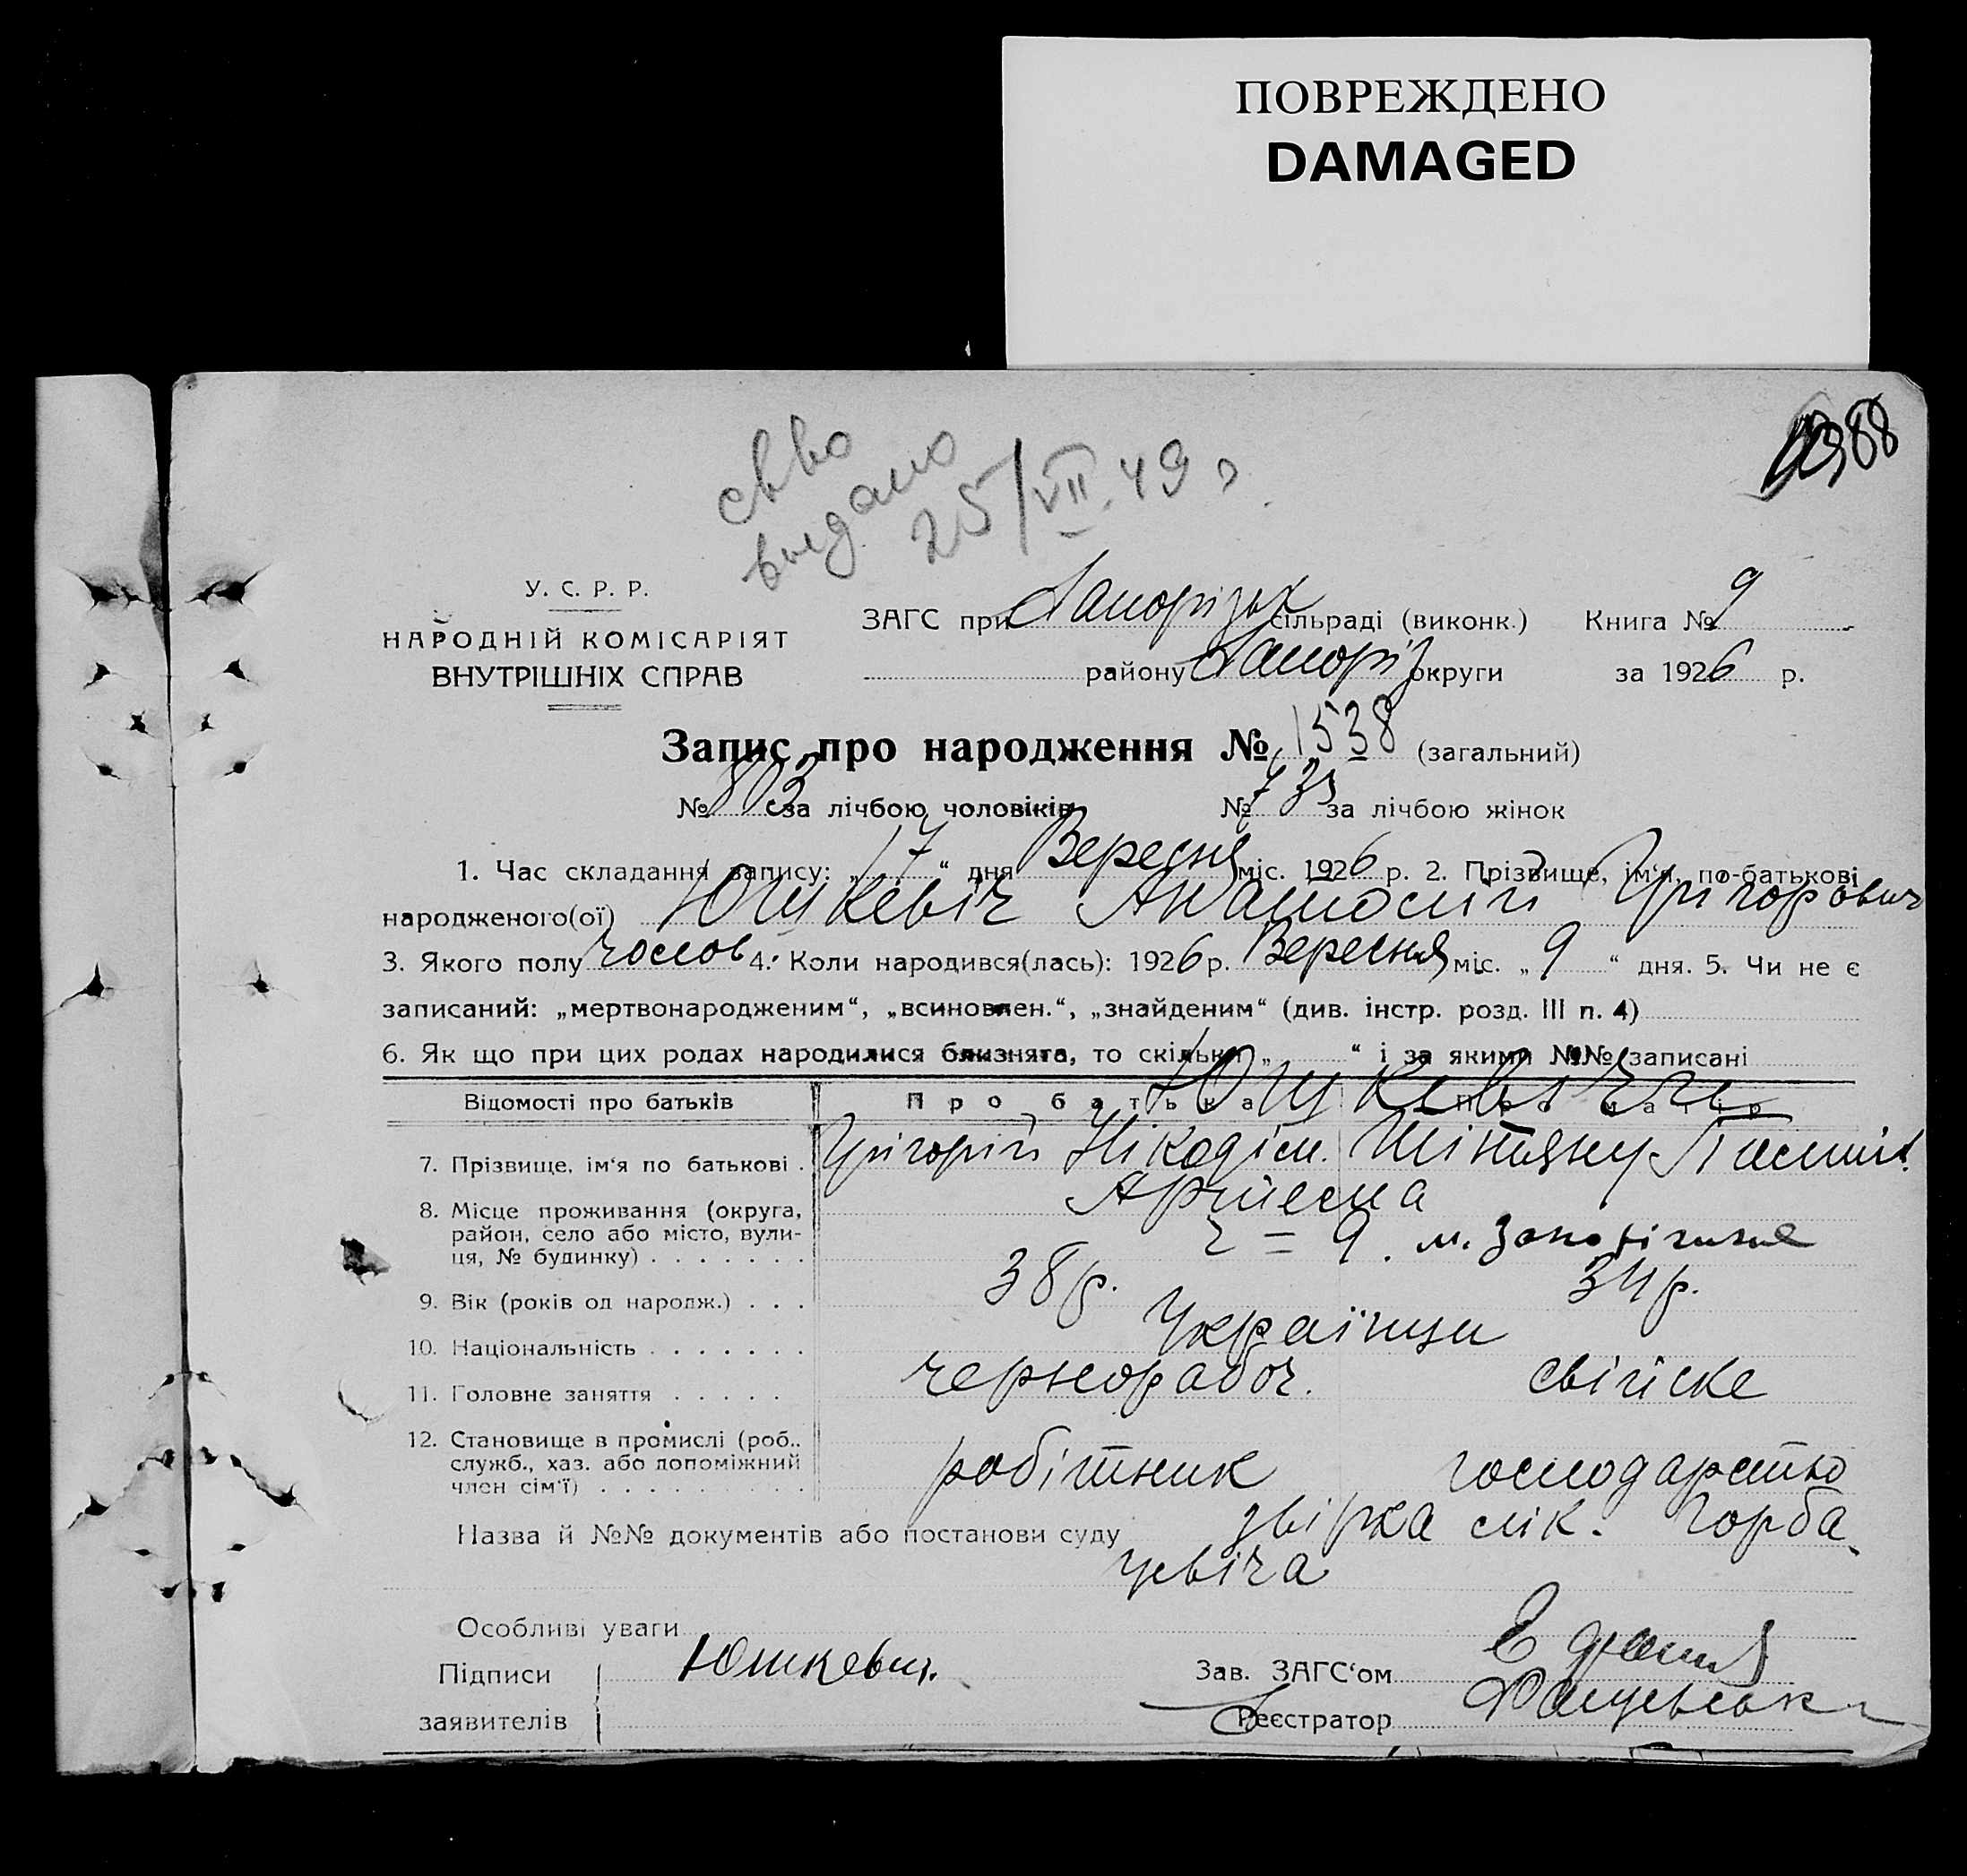 ПОВРЕЖДЕНО
DAMAGED
88
св-во
выдано
25/VII.49 г.
У. С. Р. Р.
НАРОДНІЙ КОМІСАРІЯТ
ВНУТРІШНІХ СПРАВ
ЗАГС при Запорізьк сільраді (виконк.) Книга № 9
району Запоріз округи за 1926 р.
Запис про народження № 1538 (загальний)
№ 803 за лічбою чоловіків № 735 за лічбою жінок
1. Час складання запису: „17“ дня Вересня міс. 1926 р. 2. Прізвище, ім'я, по-батькові
народженого(ої) Юшкевіч Анатолій Григорович
3. Якого полу чолов 4. Коли народився(лась): 1926 р. Вересня міс. „9“ дня. 5. Чи не є
записаний: „мертвонародженим“, „всиновлен.“, „знайденим“ (див. інстр. розд. III п. 4)
6. Як що при цих родах народилися близнята, то скільки „ “ і за якими №№ записані
Відомості про батьків Про батька Про матір
Юшкевичі
7. Прізвище, ім'я по батькові . Григорій Нікодім.
8. Місце проживання (округа, район, село або місто, вулиця, № будинку) . . . . . . . Артема
9. м. Запоріжжє
9. Вік (років од народж.) . . . 38 р. 34 р.
10. Національність . . . . . . . Українци
11. Головне заняття . . . . . чернорабоч. свійске
12. Становище в промислі (роб., служб., хаз. або допоміжний член сім'ї) . . . . . . . . . робітник господарство
Назва й №№ документів або постанови суду звірка лік. Горба
цевіча
Особливі уваги
Підписи Юшкевич. Зав. ЗАГС'ом
заявителів Реєстратор